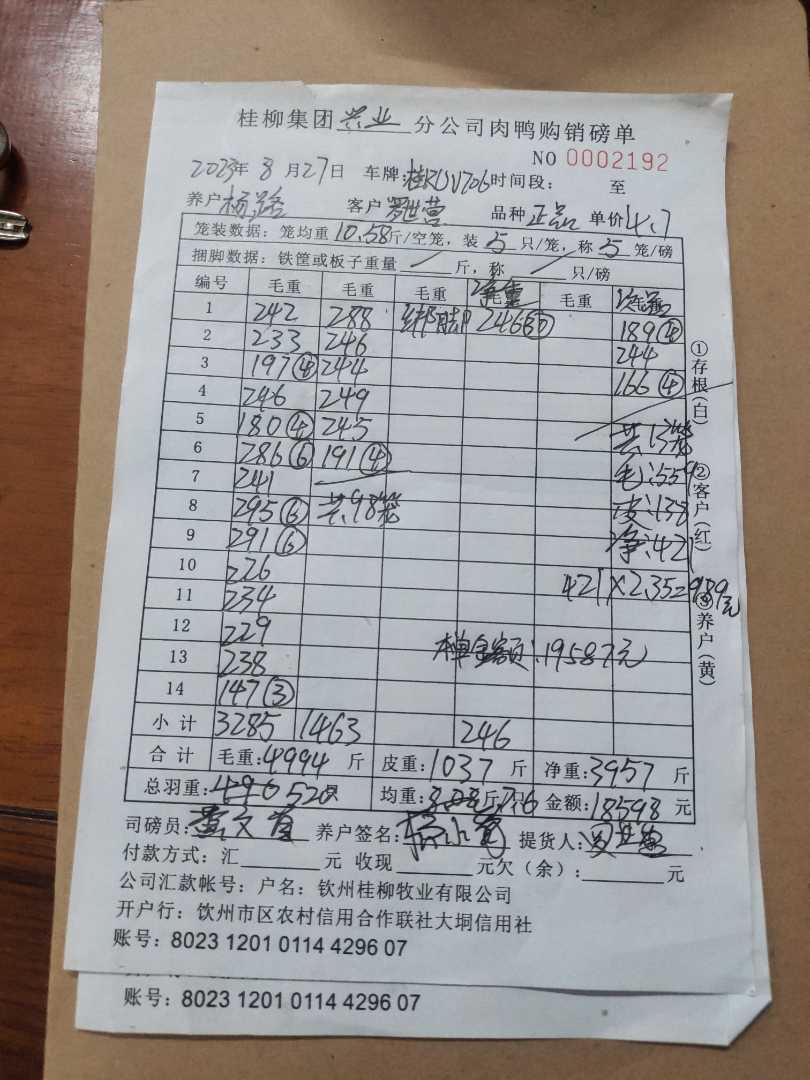 桂柳集团兴业分公司肉鸭购销磅单
NO 0002192
2023年8月27日 车牌:桂KUV706 时间段: 至
养户 杨 客户 罗世营 品种 正品 单价 4.7
笼装数据:笼均重10.58斤/空笼,装5只/笼,称5笼/磅
捆脚数据:铁筐或板子重量 斤,称 只/磅
编号 毛重 毛重 毛重 净重 毛重 次品
1 242 288 绑脚 246 189④
2 233 246 244
3 197④ 244 166④
4 246 249
5 180④ 245 共13笼
6 286⑥ 191④ 毛:559
7 241 皮:138
8 295⑥ 共98笼 净:421
9 291⑥
10 226 421×2.35=989元
11 234
12 229 本单金额:19587元
13 238
14 147③
小计 3285 1463 246
合计 毛重:4994斤 皮重:1037斤 净重:3957斤
总羽重:490 520只 均重: 斤/只 7.6 金额:18598元
司磅员: 养户签名: 提货人:
付款方式:汇 元 收现 元欠(余): 元
公司汇款帐号:户名:钦州桂柳牧业有限公司
开户行:钦州市区农村信用合作联社大垌信用社
账号:8023 1201 0114 4296 07
账号:8023 1201 0114 4296 07
①存根(白)
②客户(红)
③养户(黄)